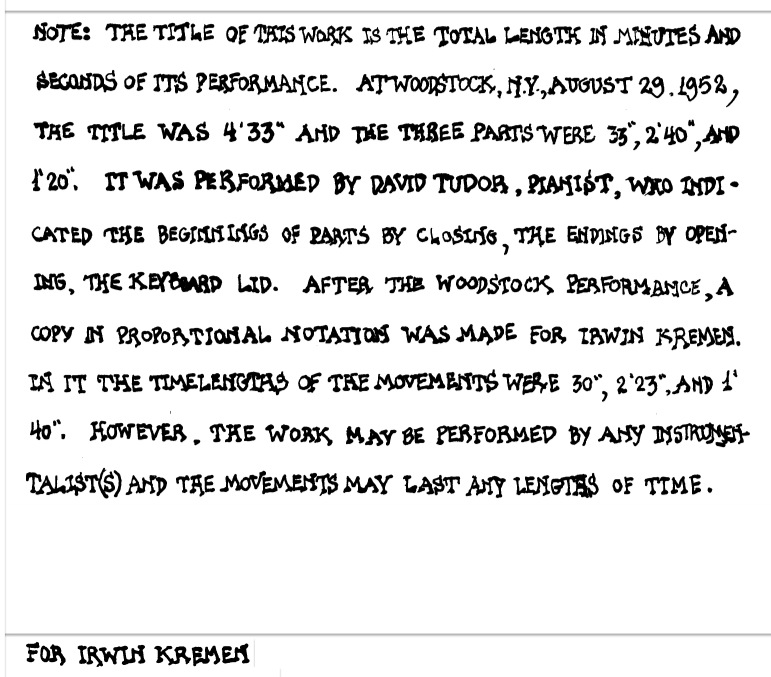 NOTE: THE TITLE OF THIS WORK IS THE TOTAL LENGTH IN MINUTES AND
SECONDS OF ITS PERFORMANCE. AT WOODSTOCK, N.Y., AUGUST 29. 1952,
THE TITLE WAS 4'33" AND THE THREE PARTS WERE 33", 2'40", AND
1'20". IT WAS PERFORMED BY DAVID TUDOR, PIANIST, WHO INDI-
CATED THE BEGINNINGS OF PARTS BY CLOSING, THE ENDINGS BY OPEN-
ING, THE KEYBOARD LID. AFTER THE WOODSTOCK PERFORMANCE, A
COPY IN PROPORTIONAL NOTATION WAS MADE FOR IRWIN KREMEN.
IN IT THE TIMELENGTHS OF THE MOVEMENTS WERE 30", 2'23", AND 1'
40". HOWEVER, THE WORK MAY BE PERFORMED BY ANY INSTRUMEN-
TALIST(S) AND THE MOVEMENTS MAY LAST ANY LENGTHS OF TIME.
FOR IRWIN KREMEN